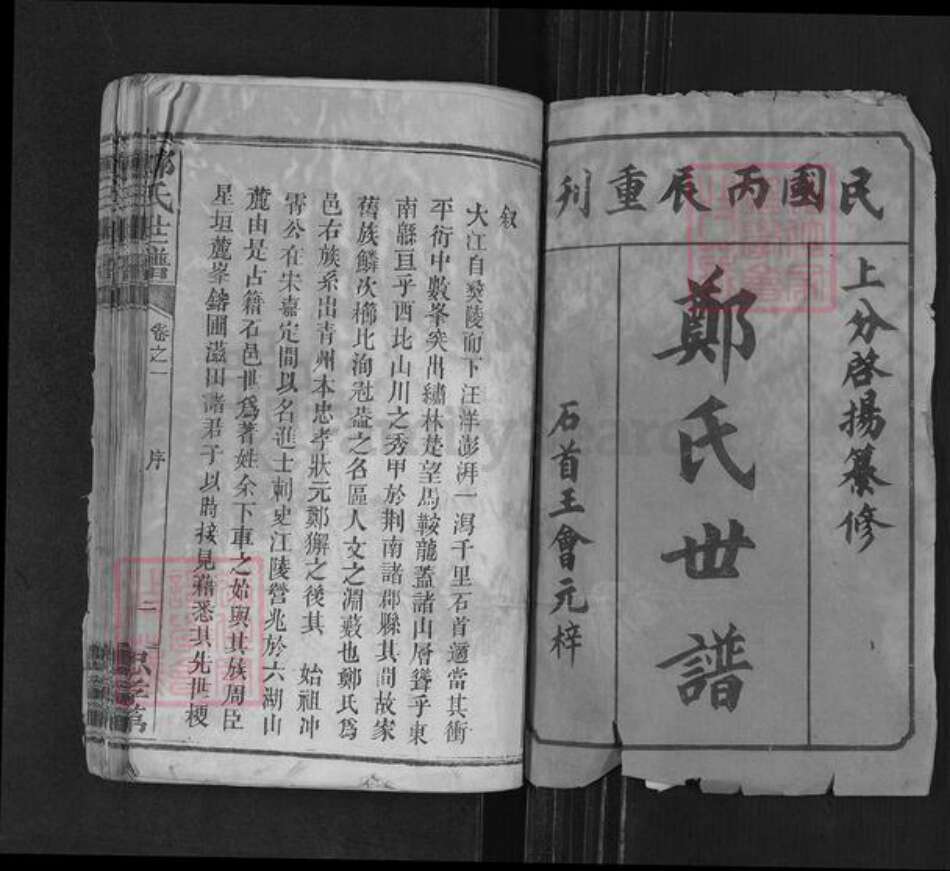 民國丙辰重刊
上分啓揚纂修
鄭氏世譜
石首王會元梓
叙
大江自㢡陵而下汪洋澎湃一瀉千里石首適當其衝
平衍中數峯突出繡林楚望馬鞍龍蓋諸山層聳乎東
南緜亘乎西北山川之秀甲於荆南諸郡縣其間故家
舊族鱗次櫛比洵冠蓋之名區人文之淵藪也鄭氏爲
邑右族系出青州本忠孝狀元鄭獬之後其 始祖冲
霄公在宋嘉定間以名進士刺史江陵營兆於六湖山
麓由是占籍石邑世爲著姓余下車之始與其族周臣
星垣麓峯鎔圃滋田諸君子以時接見藉悉其先世稷
鄭氏世譜
卷之一
序
二